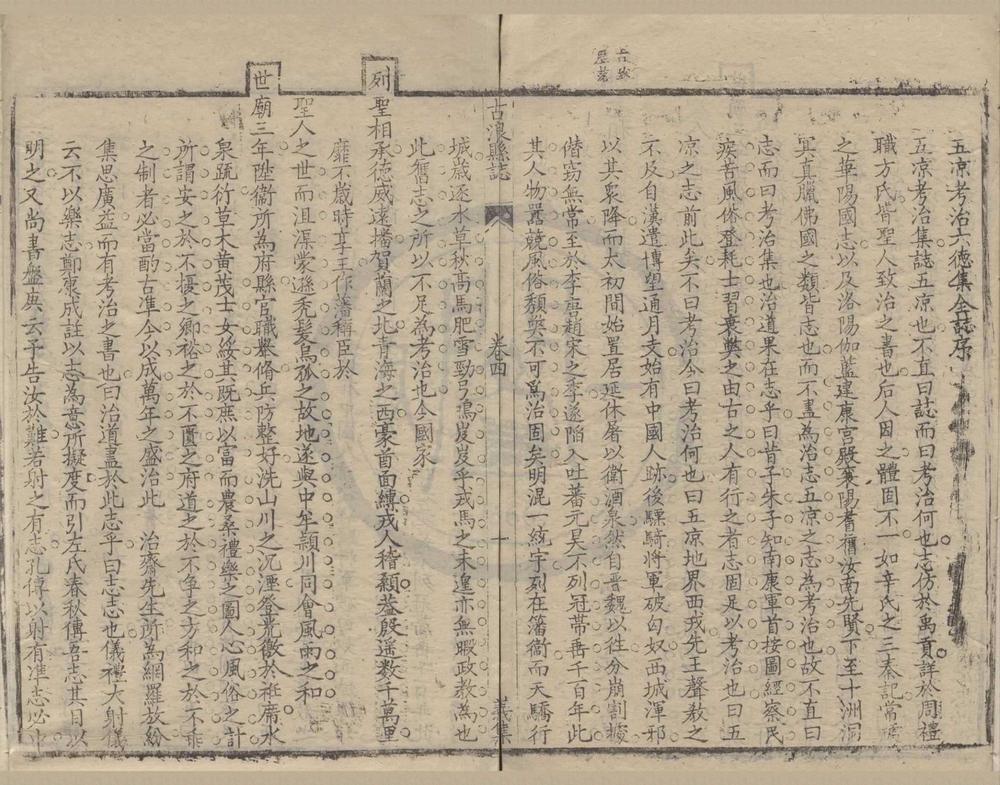 五凉考治六德集全誌序
五凉考治集誌五凉也不直曰誌而曰考治何也志仿於禹貢詳於周禮
職方氏皆聖人致治之書也后人因之體固不一如辛氏之三秦記常璩
之華陽國志以及洛陽伽藍建康宮殿襄陽耆舊汝南先賢下至十洲洞
冥真臘佛國之類皆志也而不盡為治志五凉之志為考治也故不直曰
志而曰考治集也治道果在志乎曰昔子朱子知南康軍首按圖經察民
疾苦風俗登耗士習衰獘之由古之人有行之者志固足以考治也曰五
凉之志前此矣不曰考治今曰考治何也曰五凉地界西戎先王聲教之
不及自漢遣博望通月支始有中國人跡後驃騎將軍破匈奴西城渾邪
以其衆降而太初間始置居延休屠以衛酒泉然自晋魏以往分崩割據
僭窃無常至於李唐趙宋之季遂陷入吐蕃元昊不列冠帶再千百年此
其人物囂競風俗頹獘不可為治固矣明混一統宇列在籓衛而天驕行
古浪縣誌
卷四
十
義集
城歲逐水草秋高馬肥雪勁弓鳴岌岌乎戎馬之未遑亦無暇政教為也
此舊志之所以不足為考治也今國家
列聖相承德威遠播賀蘭之北青海之西豪酋面縛戎人稽顙蒼殷遥数千萬里
靡不歲時享王作藩稱臣於
聖人之世而沮渠蒙遜禿髮烏孤之故地遂與中牟頴川同會風雨之和
世廟三年陞衞所為府縣官職舉脩兵防整好洗山川之沉湮登光徵於袵席水
泉疏衍草木黄茂士女綏其既庶以富而農桑禮樂之圖人心風俗之計
所謂安之於不擾之鄉裕之於不匱之府道之於不争之方和之於不乖
之制者必當酌古準今以成萬年之盛治此 治齋先生所為網羅放紛
集思廣益而有考治之書也曰治道盡於此志乎曰志志也儀禮大射儀
云不以樂志鄭康成註以志為意所擬度而引左氏春秋傳吾志其目以
明之又尚書盤庚云予告汝於難若射之有志孔傳以射有準志必中